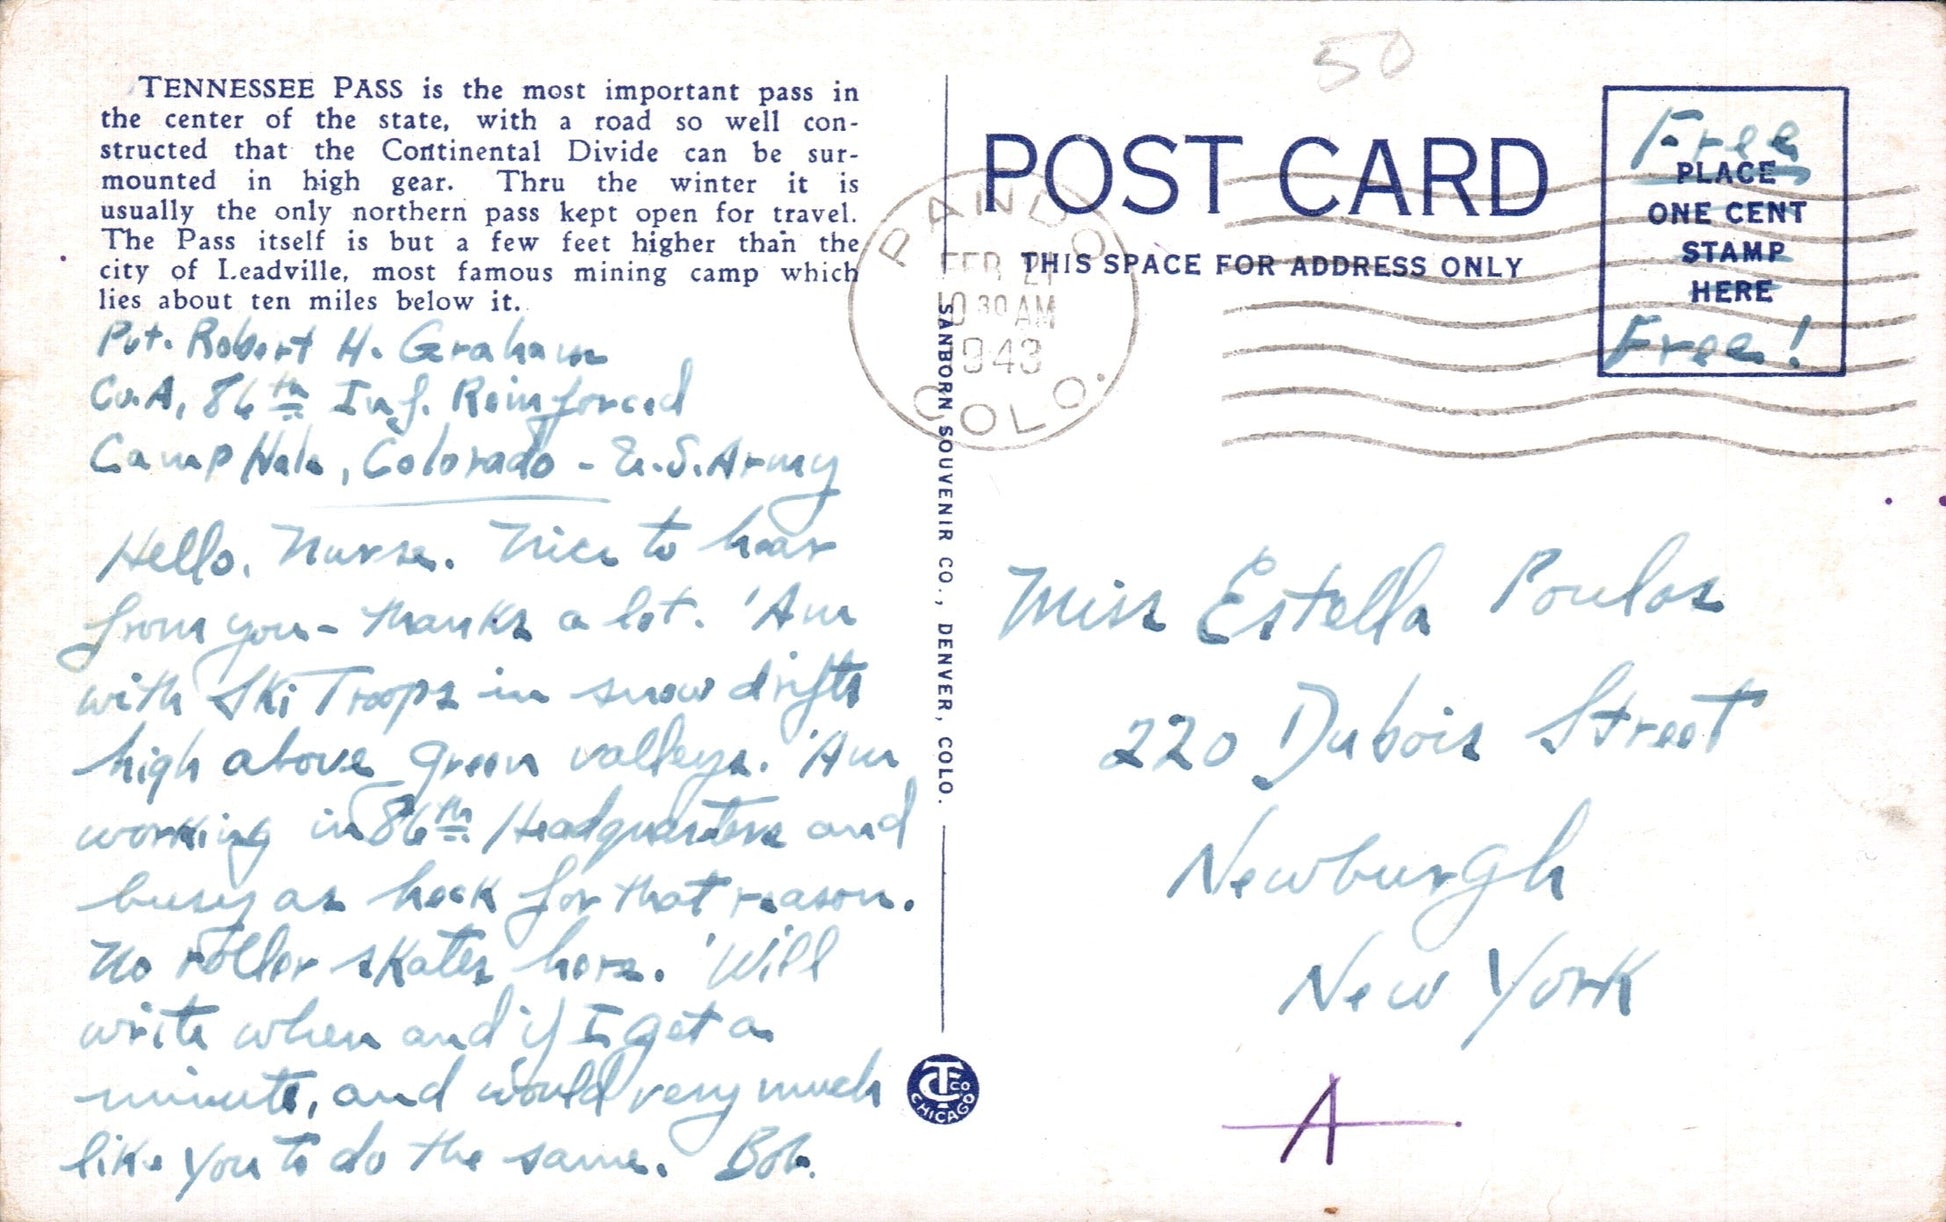 50
TENNESSEE PASS is the most important pass in
the center of the state, with a road so well con-
structed that the Continental Divide can be sur-
mounted in high gear. Thru the winter it is
usually the only northern pass kept open for travel.
The Pass itself is but a few feet higher than the
city of Leadville, most famous mining camp which
lies about ten miles below it.
Pvt. Robert H. Graham
Co. A, 86th Inf. Reinforced
Camp Hale, Colorado - U.S. Army
Hello, Nurse. Nice to hear
from you - thanks a lot. 'Am
with Ski Troops in snow drifts
high above green valleys. 'Am
working in 86th Headquarters and
busy as heck for that reason.
No roller skates here. 'Will
write when and if I get a
minute, and would very much
like you to do the same. Bob.
SANBORN SOUVENIR CO., DENVER, COLO.
CTCO
CHICAGO
POST CARD
THIS SPACE FOR ADDRESS ONLY
PANDO
FEB 21
10 30 AM
1943
COLO.
Free
PLACE
ONE CENT
STAMP
HERE
Free!
Miss Estella Poulos
220 Dubois Street
Newburgh
New York
A